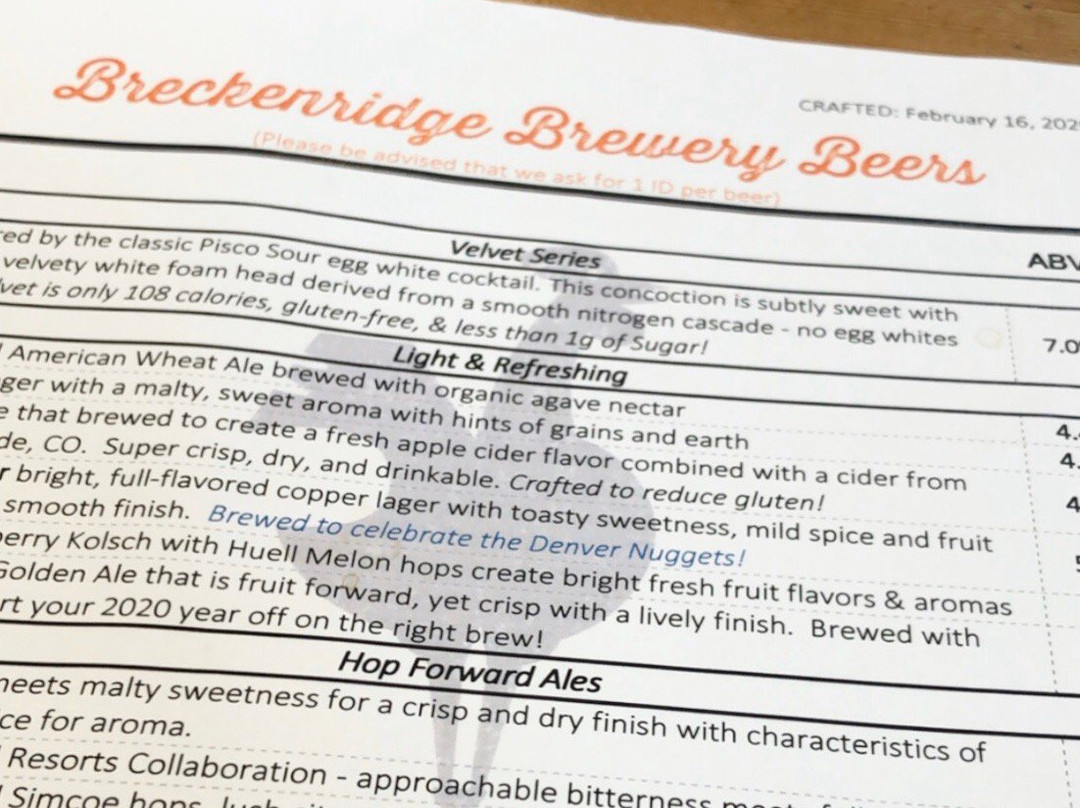 Breckenridge Brewery Beers
CRAFTED: February 16, 202
(Please be advised that we ask for 1 ID per beer)
Velvet Series
ABV
red by the classic Pisco Sour egg white cocktail. This concoction is subtly sweet with
velvety white foam head derived from a smooth nitrogen cascade - no egg whites
vet is only 108 calories, gluten-free, & less than 1g of Sugar!
7.0
Light & Refreshing
American Wheat Ale brewed with organic agave nectar
4.
ger with a malty, sweet aroma with hints of grains and earth
4.
e that brewed to create a fresh apple cider flavor combined with a cider from
de, CO. Super crisp, dry, and drinkable. Crafted to reduce gluten!
4
r bright, full-flavored copper lager with toasty sweetness, mild spice and fruit
smooth finish. Brewed to celebrate the Denver Nuggets!
5
berry Kolsch with Huell Melon hops create bright fresh fruit flavors & aromas
Golden Ale that is fruit forward, yet crisp with a lively finish. Brewed with
rt your 2020 year off on the right brew!
Hop Forward Ales
meets malty sweetness for a crisp and dry finish with characteristics of
ce for aroma.
Resorts Collaboration - approachable bitterness
Simcoe hops, lush